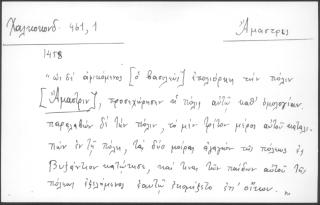 Χαλκοκονδ. 461, 1
Ἄμαστρις
1458
"ὡς δὲ ἀφικόμενος [ὁ βασιλεὺς] ἐπολιόρκει τὴν πόλιν
[Ἄμαστριν], προσεχώρησεν ἡ πόλις αὐτῷ καθ' ὁμολογίαν.
παραλαβὼν δὲ τὴν πόλιν, τὸ μὲν τρίτον μέρος αὐτοῦ καταλι-
πὼν ἐν τῇ πόλει, τὰ δύο μοίρας ἀγαγὼν τῆς πόλεως ἐς
Βυζάντιον κατῴκισε, καί τινας τῶν παίδων αὐτοῦ τῆς
πόλεως ἐξελόμενος ἑαυτῷ ἐκομίζετο ἐπ' οἴκου. "